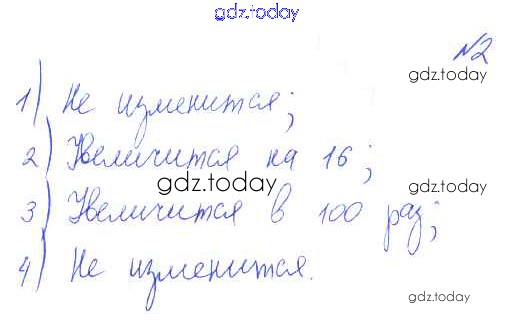 gdz.today
№2
gdz.today
1) Не изменится;
2) Увеличится на 16;
gdz.today
3) Увеличится в 100 раз;
4) Не изменится.
gdz.today